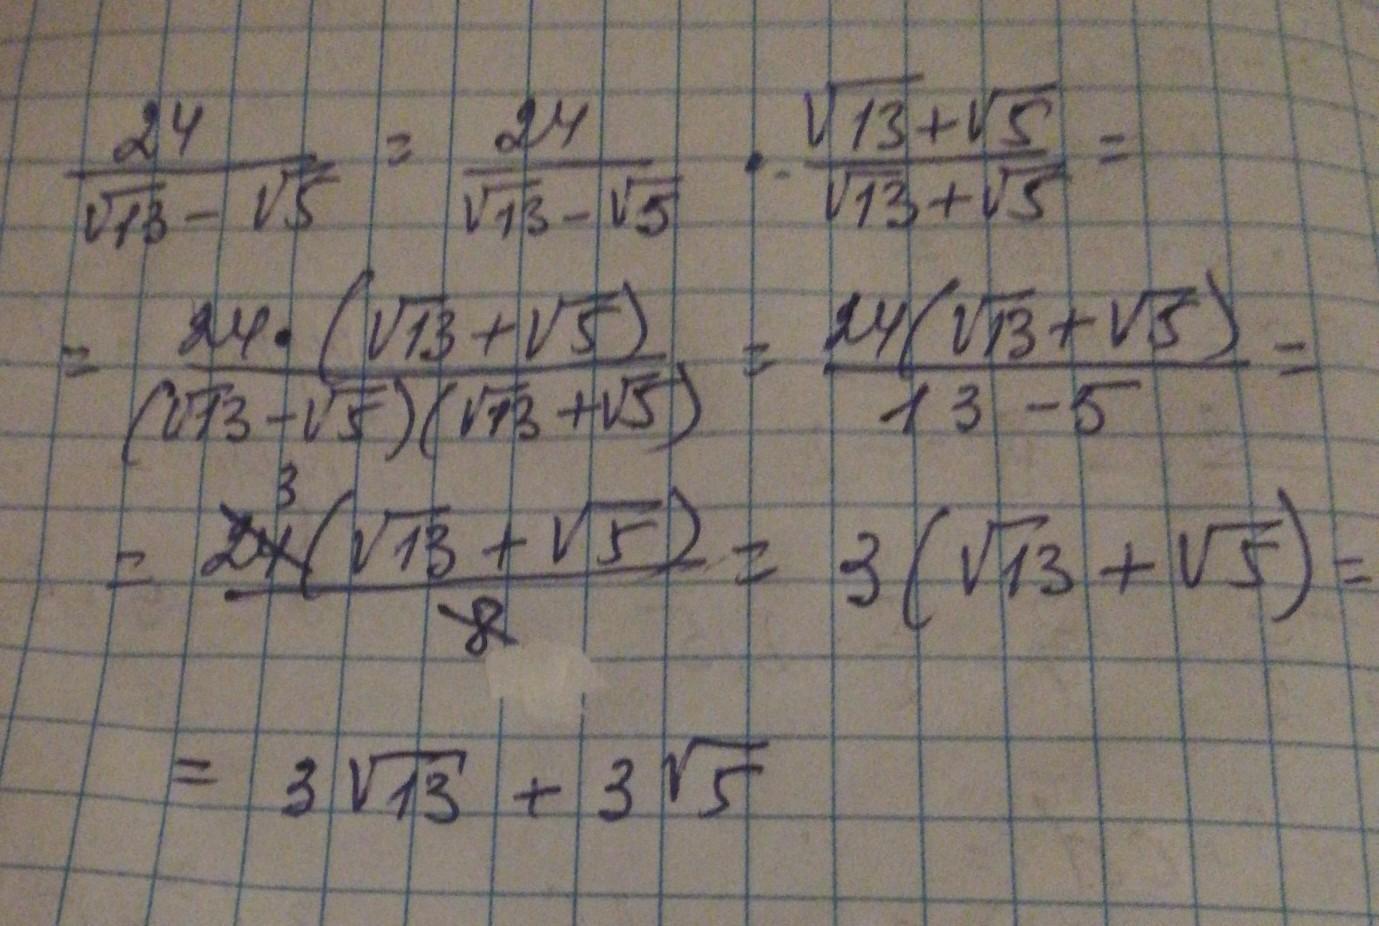 24/(√13 - √5) = 24/(√13 - √5) · (√13 + √5)/(√13 + √5) =
= 24 · (√13 + √5)/((√13 - √5)(√13 + √5)) = 24(√13 + √5)/(13 - 5) =
3
= 24(√13 + √5)/8 = 3(√13 + √5) =
= 3√13 + 3√5